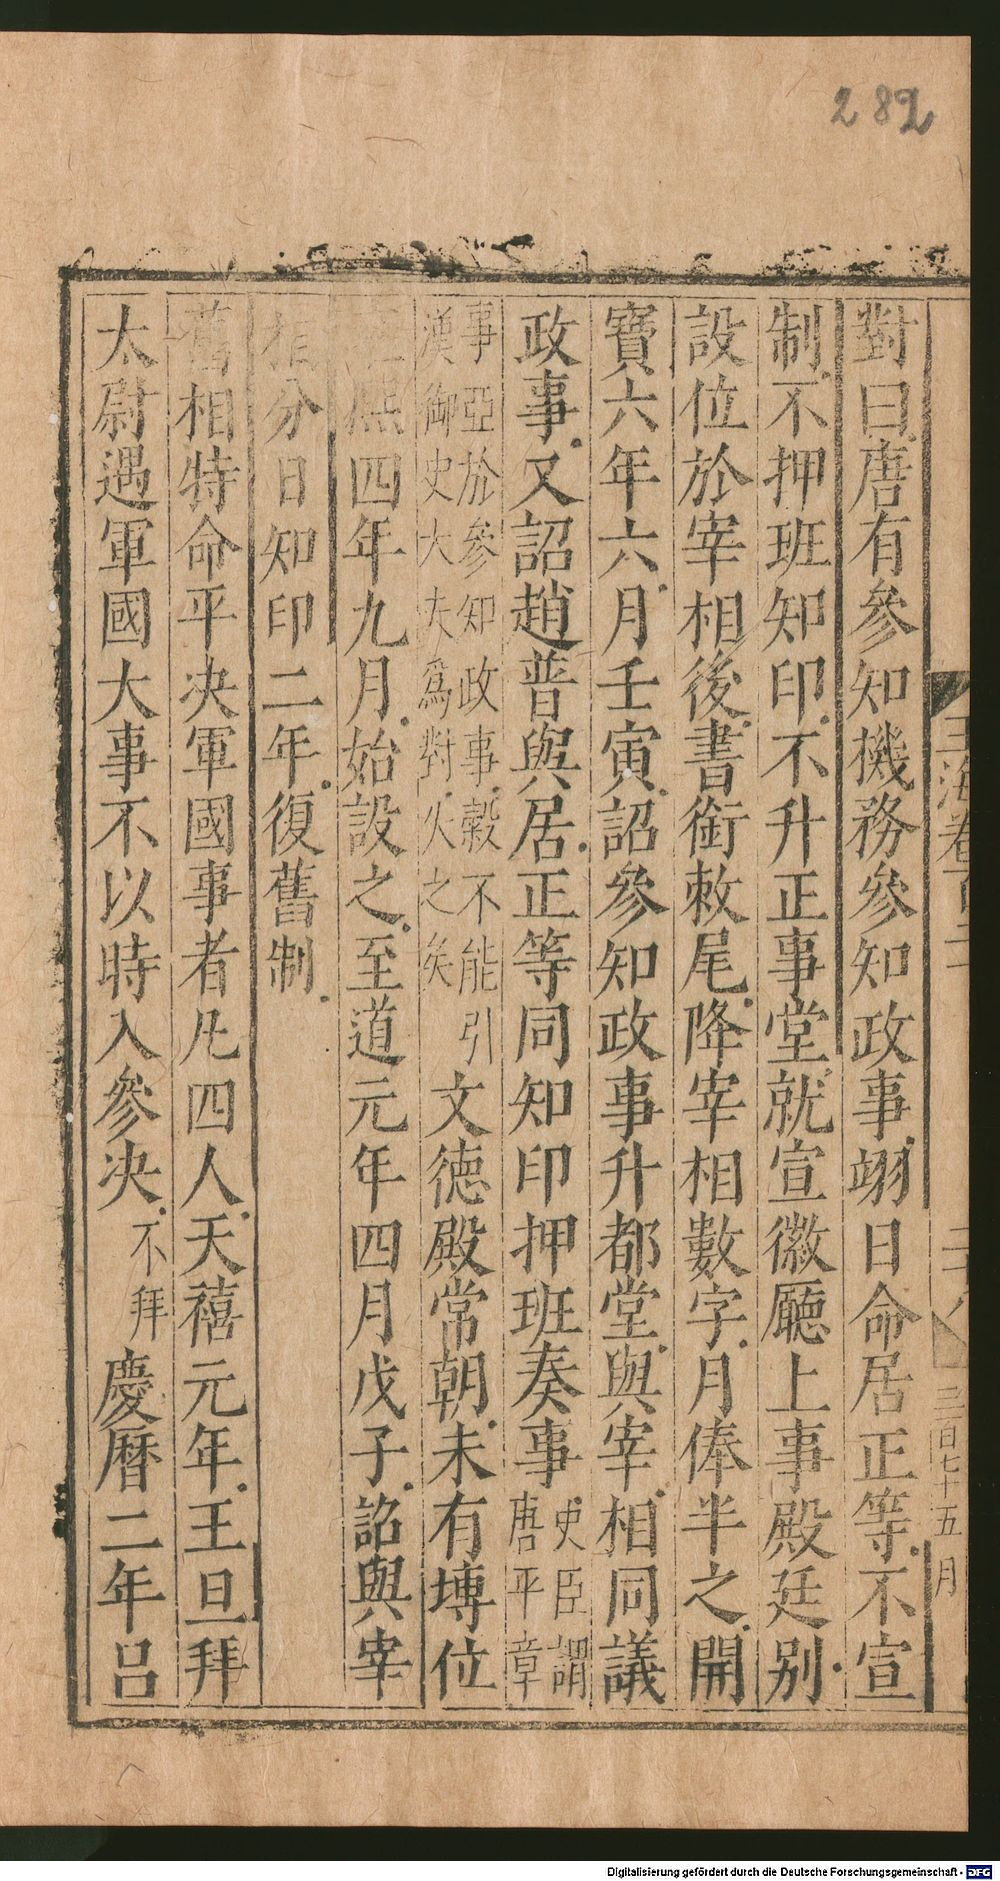 282
對曰唐有參知機務參知政事翊日命居正等不宣
制不押班知印不升正事堂就宣徽廳上事殿廷別
設位於宰相後書銜敕尾降宰相數字月俸半之開
寶六年六月壬寅詔參知政事升都堂與宰相同議
政事又詔趙普與居正等同知印押班奏事史臣謂唐平章
事亞於參知政事穀不能引漢御史大夫爲對失之矣文德殿常朝未有塼位
熙四年九月始設之至道元年四月戊子詔與宰
相分日知印二年復舊制
舊相特命平決軍國事者凡四人天禧元年王旦拜
太尉遇軍國大事不以時入參決不拜慶曆二年呂
玉海卷百二十
三百七十五 月
Digitalisierung gefördert durch die Deutsche Forschungsgemeinschaft - DFG